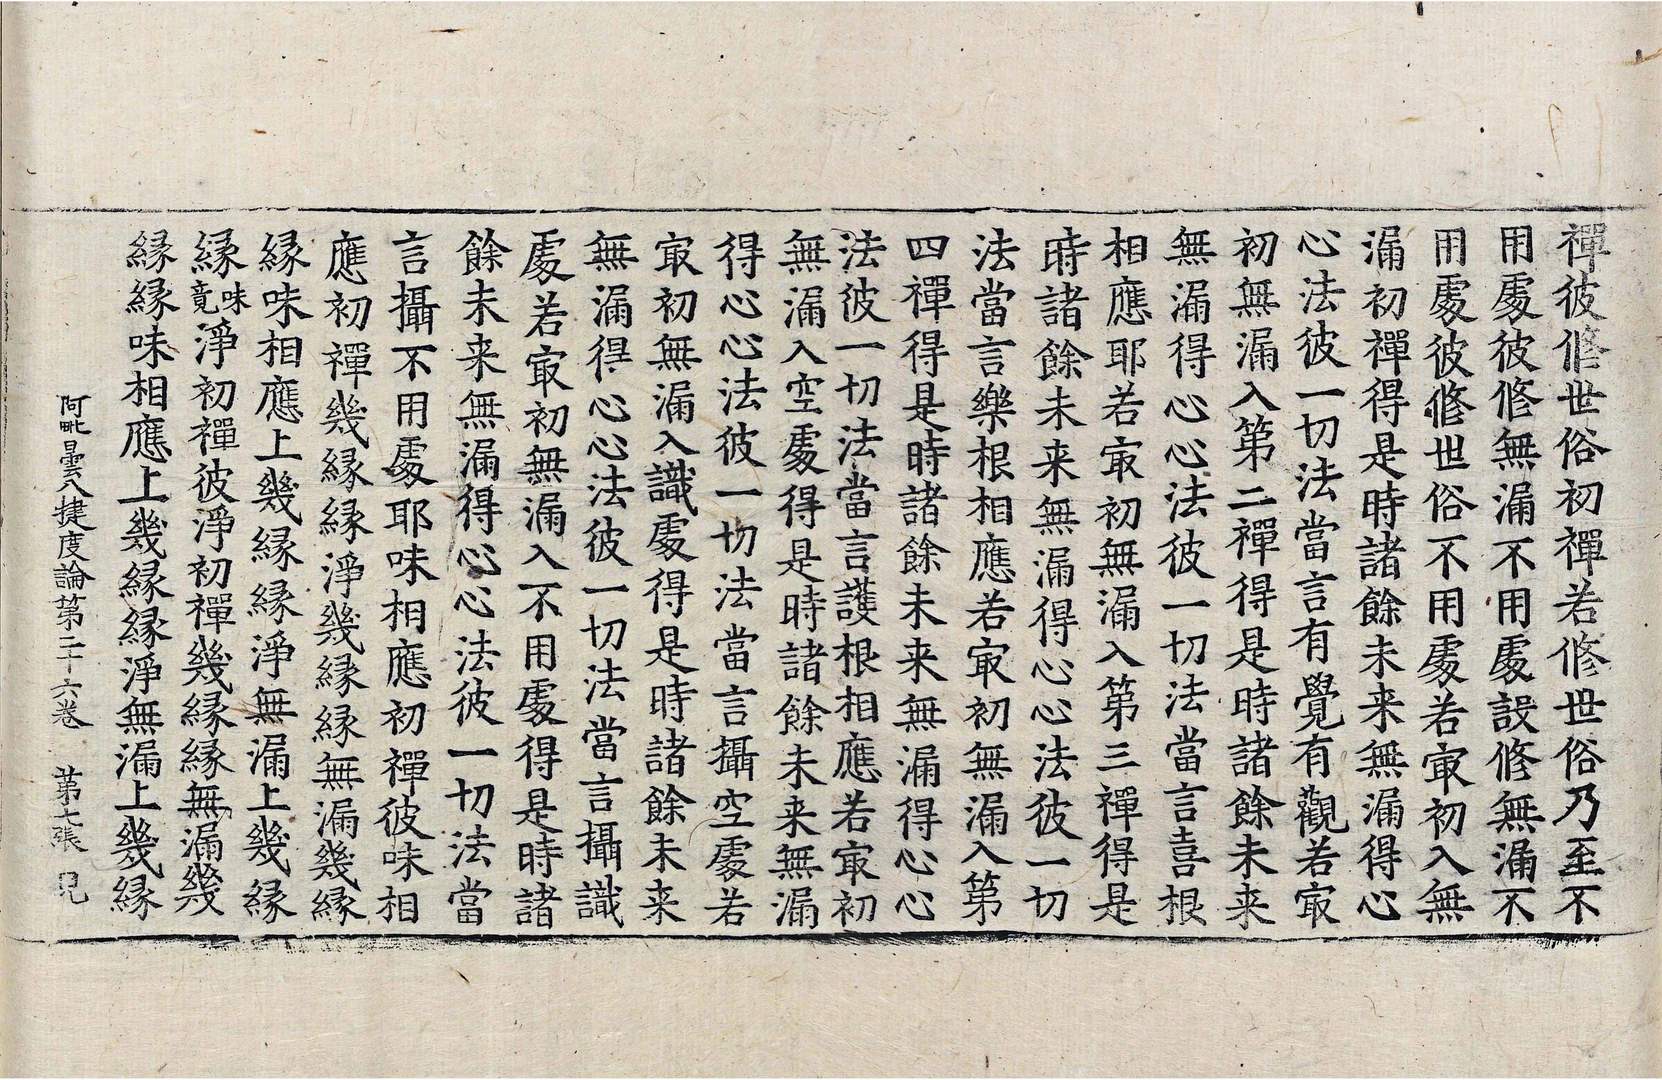 禪彼修世俗初禪若修世俗乃至不
用處彼修無漏不用處設修無漏不
用處彼修世俗不用處若㝡初入無
漏初禪得是時諸餘未来無漏得心
心法彼一切法當言有覺有觀若㝡
初無漏入第二禪得是時諸餘未来
無漏得心心法彼一切法當言喜根
相應耶若㝡初無漏入第三禪得是
時諸餘未来無漏得心心法彼一切
法當言樂根相應若㝡初無漏入第
四禪得是時諸餘未来無漏得心心
法彼一切法當言護根相應若㝡初
無漏入空處得是時諸餘未来無漏
得心心法彼一切法當言攝空處若
㝡初無漏入識處得是時諸餘未来
無漏得心心法彼一切法當言攝識
處若㝡初無漏入不用處得是時諸
餘未来無漏得心心法彼一切法當
言攝不用處耶味相應初禪彼味相
應初禪幾緣緣淨幾緣緣無漏幾緣
緣味相應上幾緣緣淨無漏上幾緣
緣味竟淨初禪彼淨初禪幾緣緣無漏幾
緣緣味相應上幾緣緣淨無漏上幾緣
阿毗曇八揵度論第二十六卷 第七張